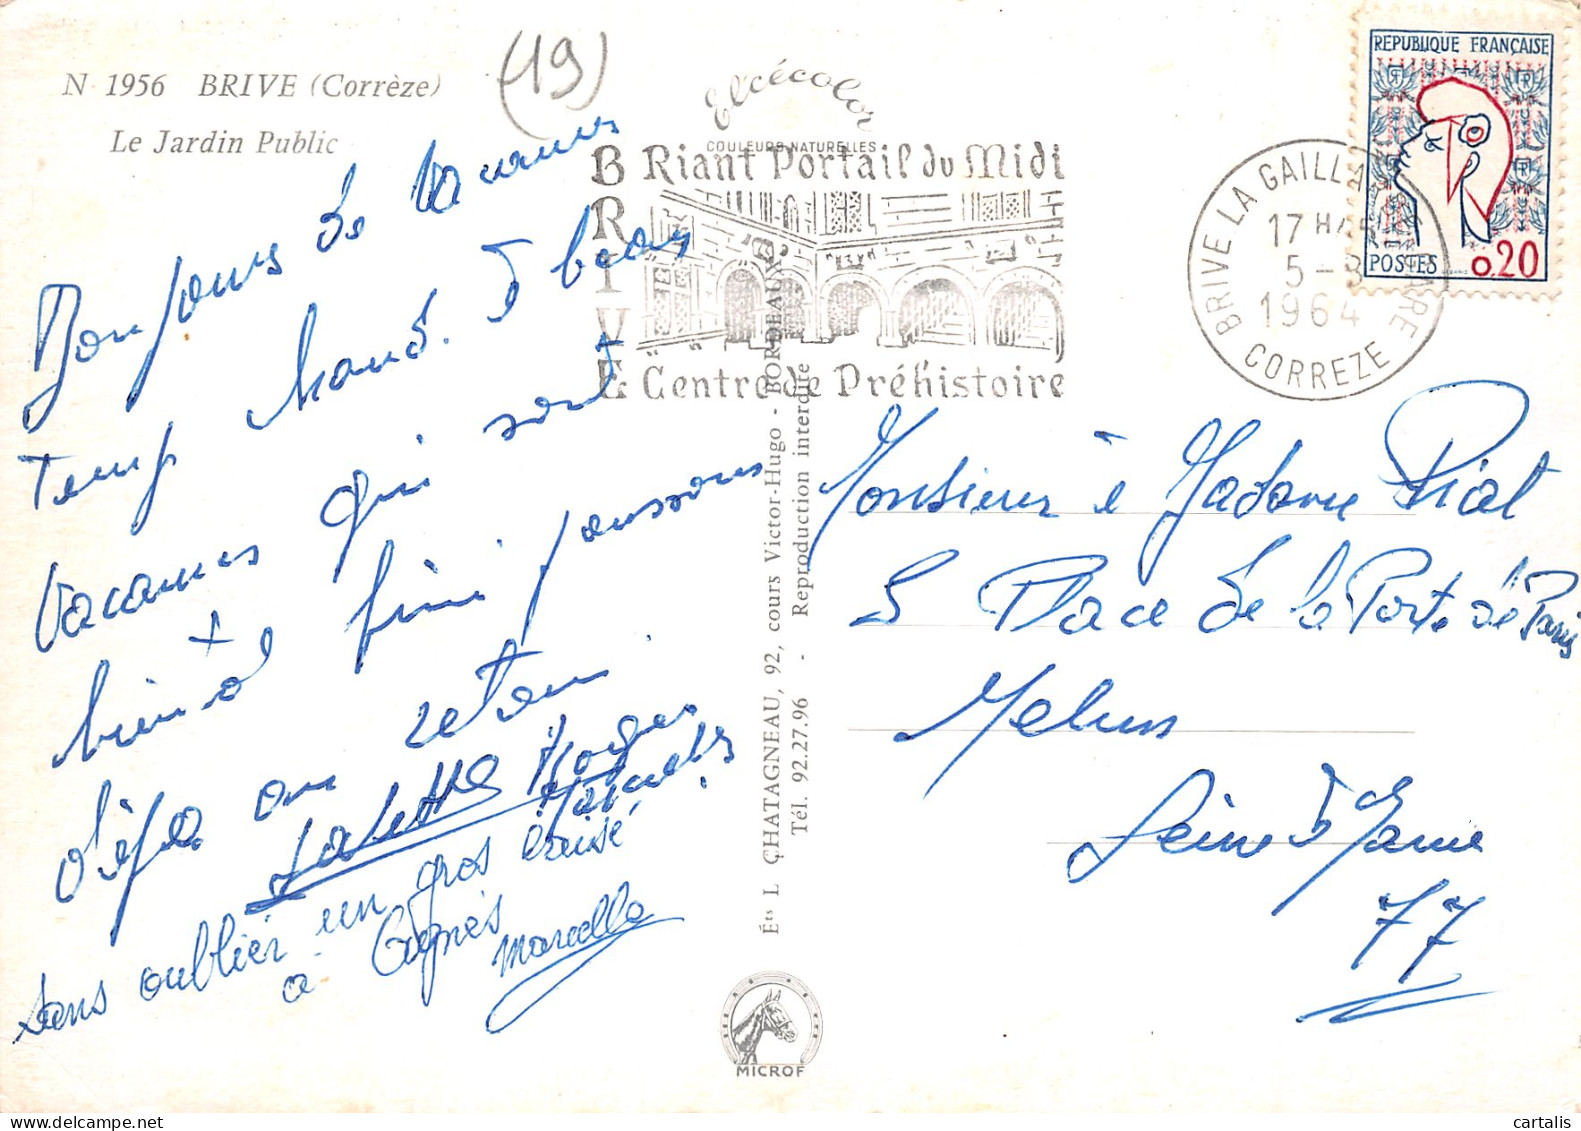 N 1956 BRIVE (Corrèze)
Le Jardin Public
(19)
Elcécolor
COULEURS NATURELLES
BRIVE
Riant Portail du Midi
Centre de Préhistoire
BRIVE LA GAILLARDE GARE
17 H
5 - 8
1964
CORREZE
REPUBLIQUE FRANÇAISE
POSTES 0.20
Bonjours de vacances
Temp chaud. à beau
Vacances qui sont
bientôt fini poussons
déjà au retour
Roger
sans oublier un gros baisé
à Agnès
Marcelle
Monsieur & Madame Piat
5 Place de la Porte de Paris
Melun
Seine & Marne
77
Éts L CHATAGNEAU, 92, cours Victor-Hugo - BORDEAUX
Tél. 92.27.96 - Reproduction interdite
MICROF
cartalis